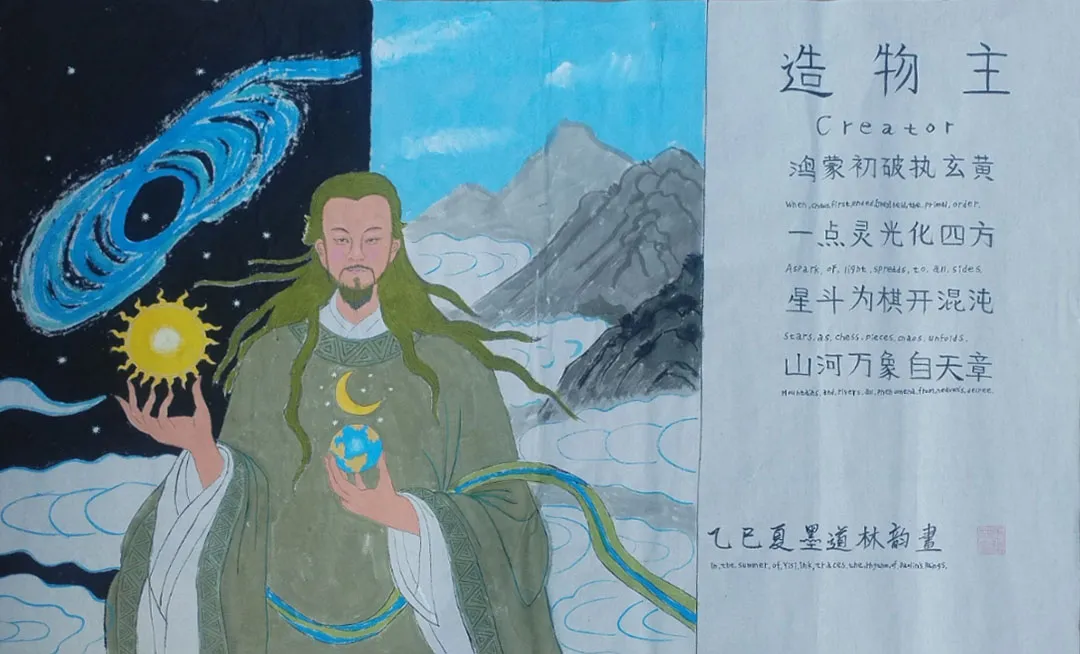 造物主
Creator
鸿蒙初破执玄黄
When.chaos.first.ended, the.primal.order.
一点灵光化四方
Aspark.of.light.spreads.to.all.sides.
星斗为棋开混沌
Stars.as.chess.pieces.chaos.unfolds.
山河万象自天章
Mountains.and.rivers.all.phenomena.from.heaven's.decree.
乙巳夏墨道林韵畫
In.the.summer.of.Yisi.Ink.traces.the.rhythm.of.Daolin's